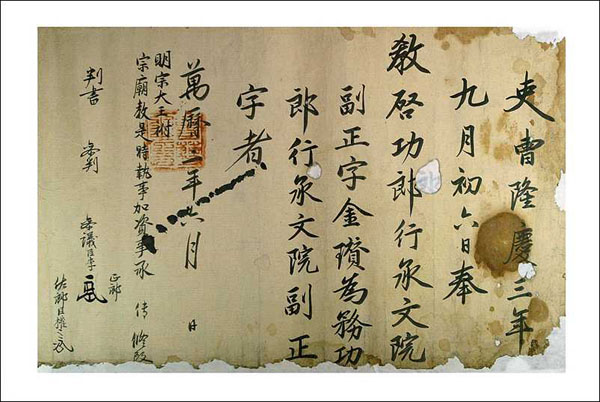 吏曹隆慶三年
九月初六日奉
教啓功郎行承文院
副正字金瓚為務功
郎行承文院副正
字者
萬曆二年六月 日
明宗大王祔
宗廟教是時執事加資事承 傳
判書 參判 參議臣李 正郎
佐郎臣